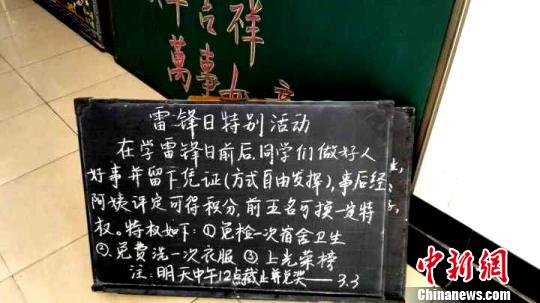 祥吉祥
萬事如意
雷锋日特别活动
在学雷锋日前后,同学们做好人
好事并留下凭证(方式自由发挥),事后经
阿姨评定可得积分,前五名可换一定特
权。特权如下:①免检一次宿舍卫生
②.免费洗一次衣服 ③上光荣榜
注:明天中午12点截止并兑奖——3.3
中新网
www.chinanews.com